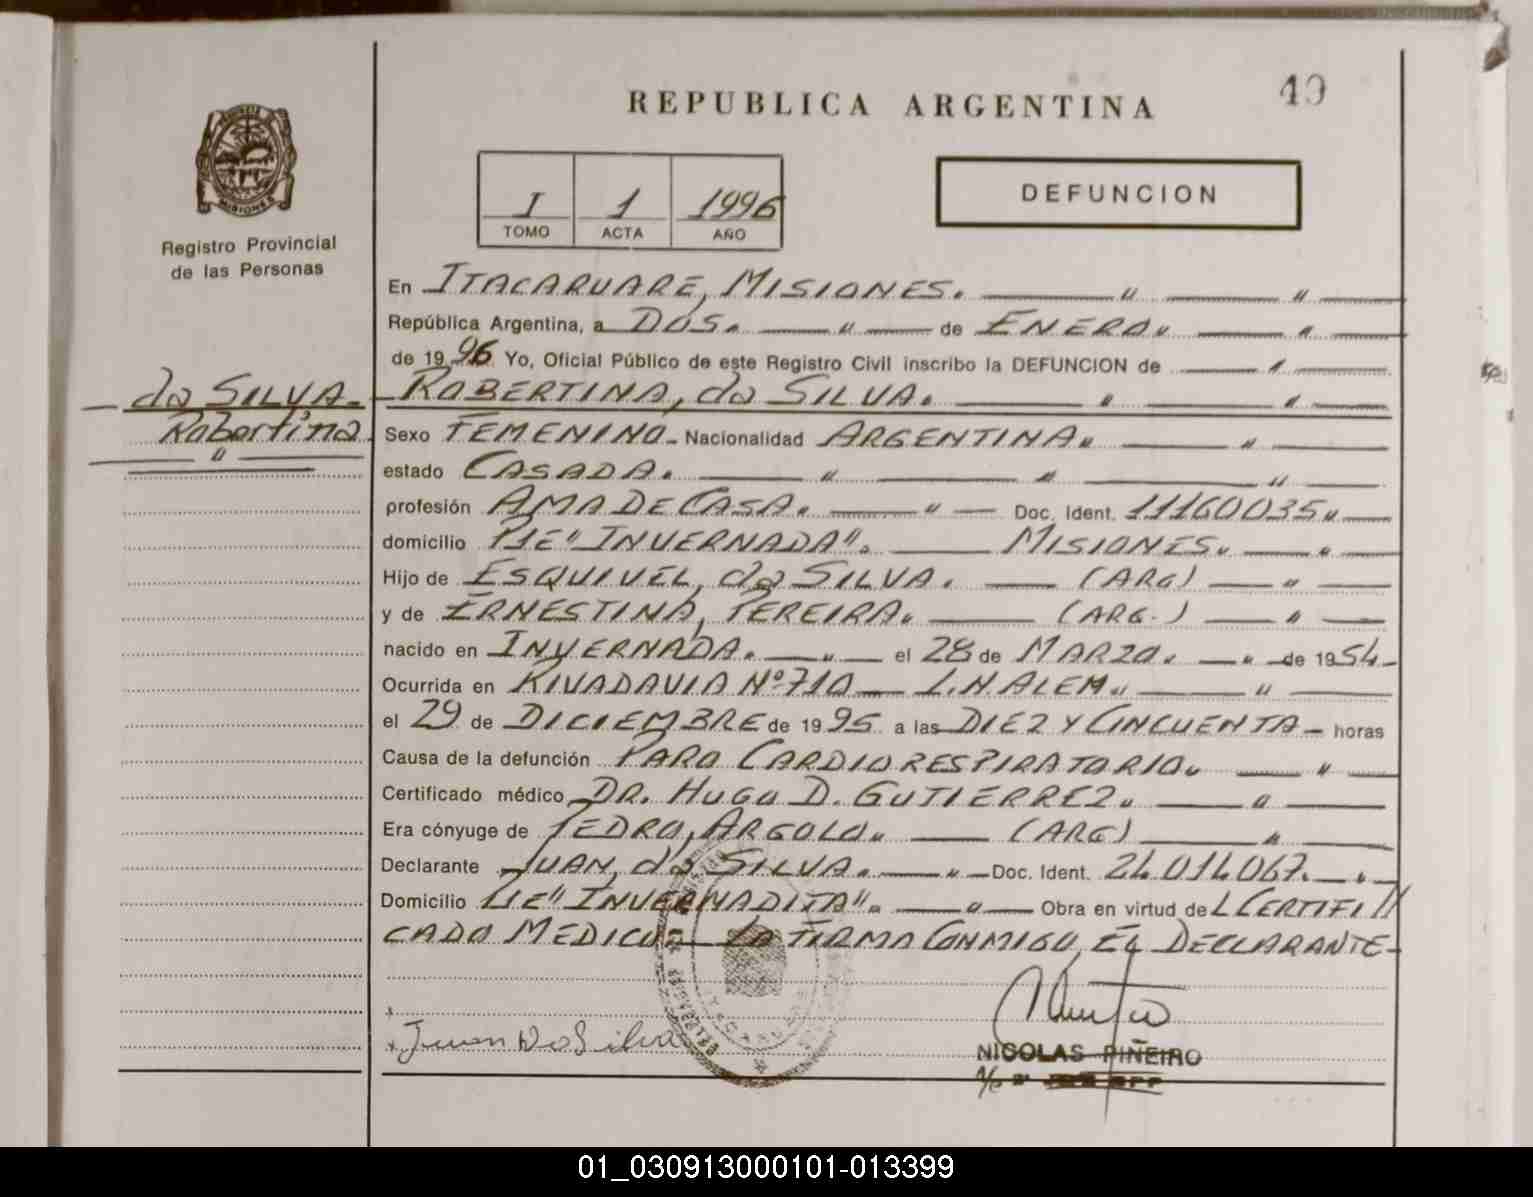 REPUBLICA ARGENTINA
49
MISIONES
Registro Provincial
de las Personas
I 1 1996
TOMO ACTA AÑO
DEFUNCION
En ITACARUARE, MISIONES. — " — " —
República Argentina, a DOS. — " — de ENERO. — " —
de 1996 Yo, Oficial Público de este Registro Civil inscribo la DEFUNCION de
da SILVA
Robertina
ROBERTINA, da SILVA. — " — " —
Sexo FEMENINO. Nacionalidad ARGENTINA. — " —
estado CASADA. — " — " — " —
profesión AMA DE CASA. — " — Doc. Ident. 11160035. —
domicilio "INVERNADA". — MISIONES. — " —
Hijo de ESQUIVEL, da SILVA. — (ARG) — " —
y de ERNESTINA, PEREIRA. — (ARG.) — " —
nacido en INVERNADA. — " — el 28 de MARZO. — " — de 1954 —
Ocurrida en RIVADAVIA Nº 710 — L.N. ALEM. — " —
el 29 de DICIEMBRE de 1995 a las DIEZ Y CINCUENTA — horas
Causa de la defunción PARO CARDIORESPIRATORIO. — " —
Certificado médico DR. HUGO D. GUTIERREZ. — " —
Era cónyuge de PEDRO, ARGOLO. — (ARG) — " —
Declarante JUAN, da SILVA. — " — Doc. Ident. 24.014.067. — " —
Domicilio "INVERNADITA". — " — Obra en virtud del CERTIFI//
CADO MEDICO. — LA FIRMA CONMIGO, EL DECLARANTE —
Juan Da Silva
NICOLAS PIÑEIRO
01_030913000101-013399